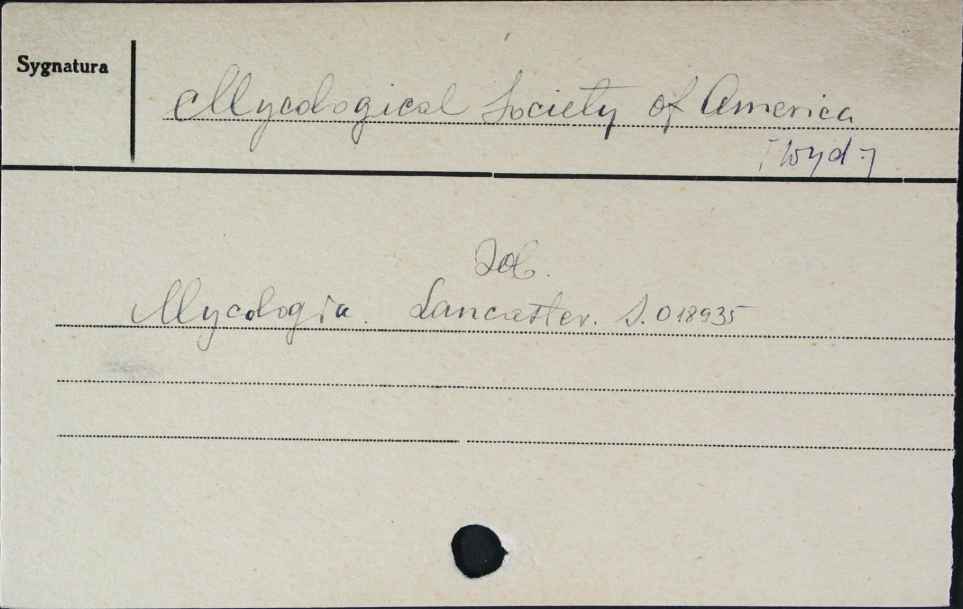 Sygnatura
Mycological Society of America
[wyd.]
Zob.
Mycologia. Lancaster. S.018935